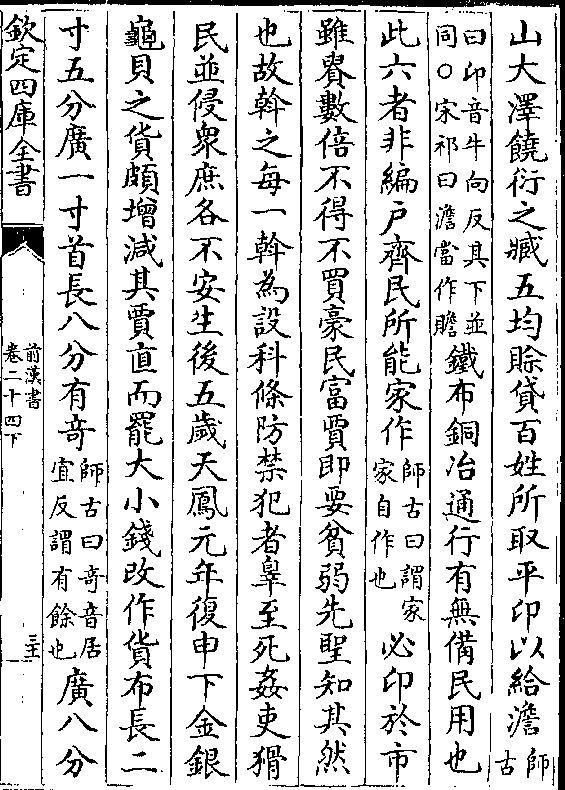 山大澤饒衍之臧五均賒貸百姓所取平卬以給澹師古
曰卬音牛向反其下並同○宋祁曰澹當作贍鐵布銅冶通行有無備民用也
此六者非編戶齊民所能家作師古曰謂家家自作也必卬於市
雖貴數倍不得不買豪民富賈即要貧弱先聖知其然
也故斡之每一斡為設科條防禁犯者辠至死姦吏猾
民並侵衆庶各不安生後五歲天鳳元年復申下金銀
龜貝之貨頗增減其賈直而罷大小錢改作貨布長二
寸五分廣一寸首長八分有奇師古曰奇音居宜反謂有餘也廣八分
欽定四庫全書
前漢書
卷二十四下